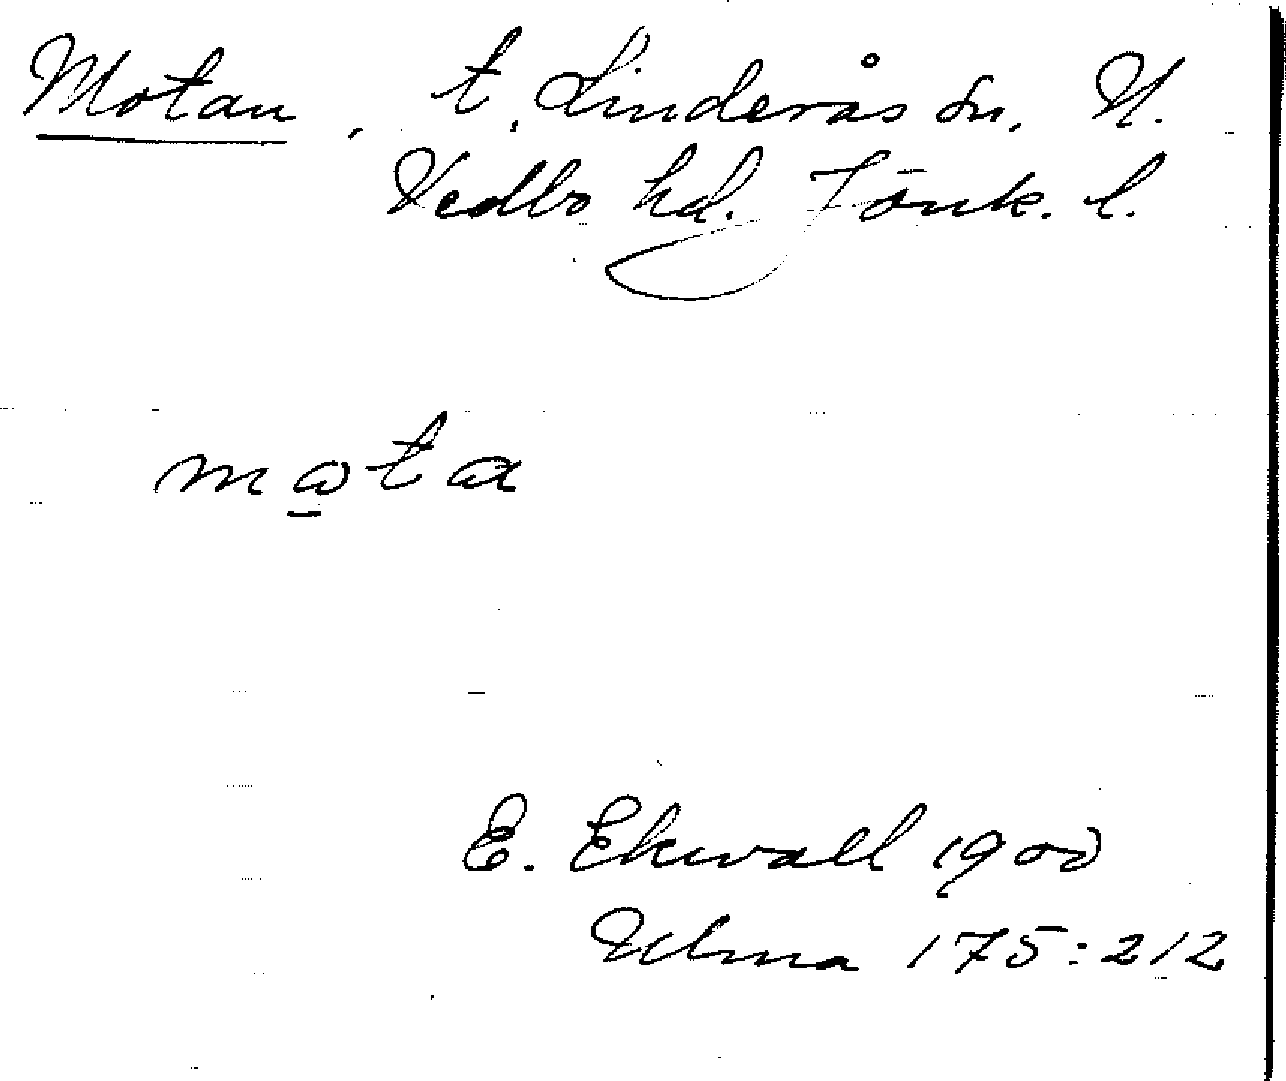 Motan, t. Linderås sn. N.
Vedbo hd. Jönk. l.
mata
E. Ekwall 1900
Ulma 175:212